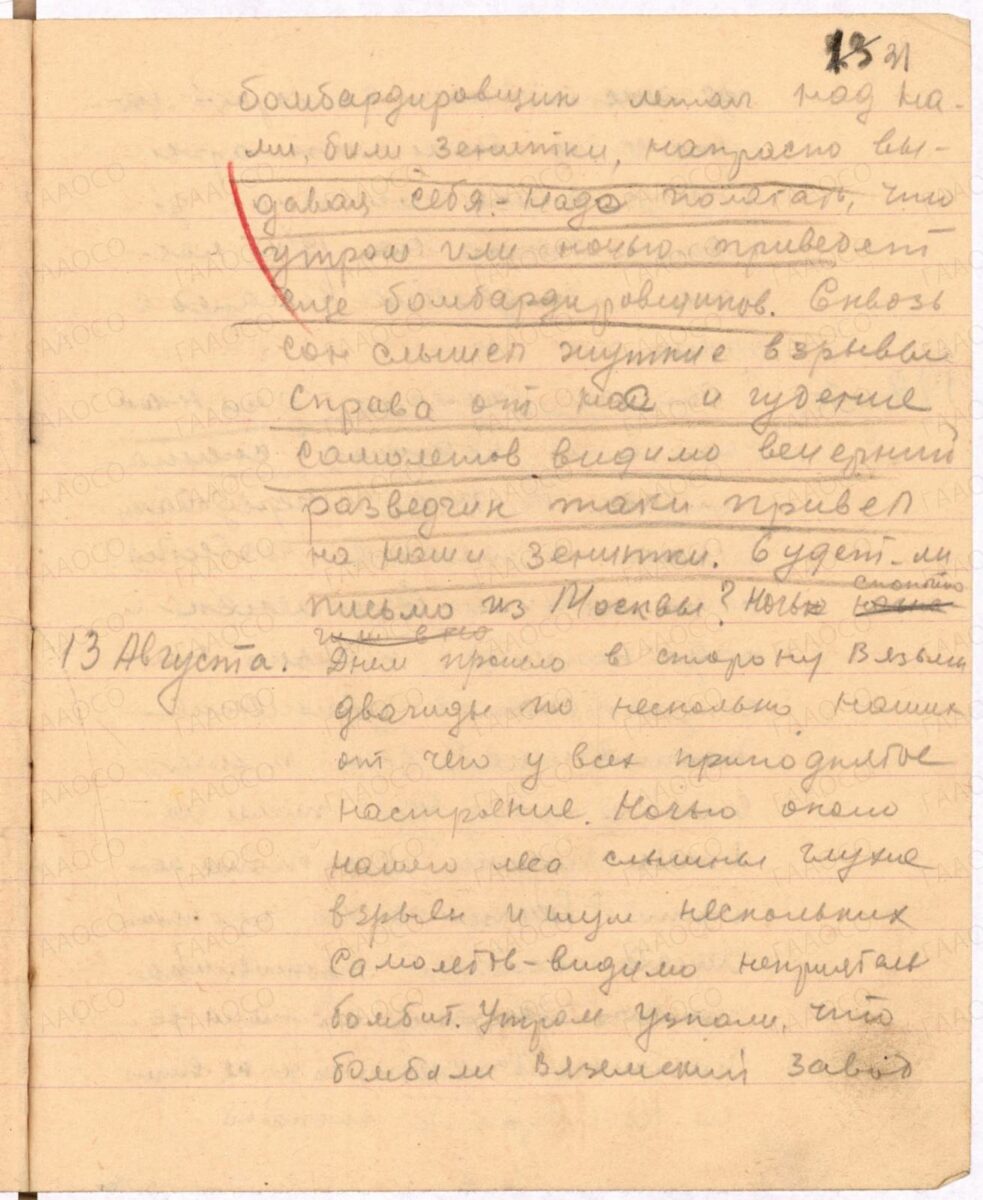 13 21
бомбардировщик летал над на-
ми, били зенитки, напрасно вы-
давая себя. - Надо полагать, что
утром или ночью приведет
еще бомбардировщиков. Сквозь
сон слышел жуткие взрывы
справа от нас и гудение
самолетов видимо вечерний
разведчик таки привел
на наши зенитки. Будет-ли
письмо из Москвы? Ночью спокойно
13 Августа. Днем прошло в сторону Вязьмы
дважды по несколько наших
от чего у всех приподнятое
настроение. Ночью около
нашего леса слышны глухие
взрывы и шум нескольких
самолетов - видимо неприятель
бомбит. Утром узнали, что
бомбили Вяземский завод